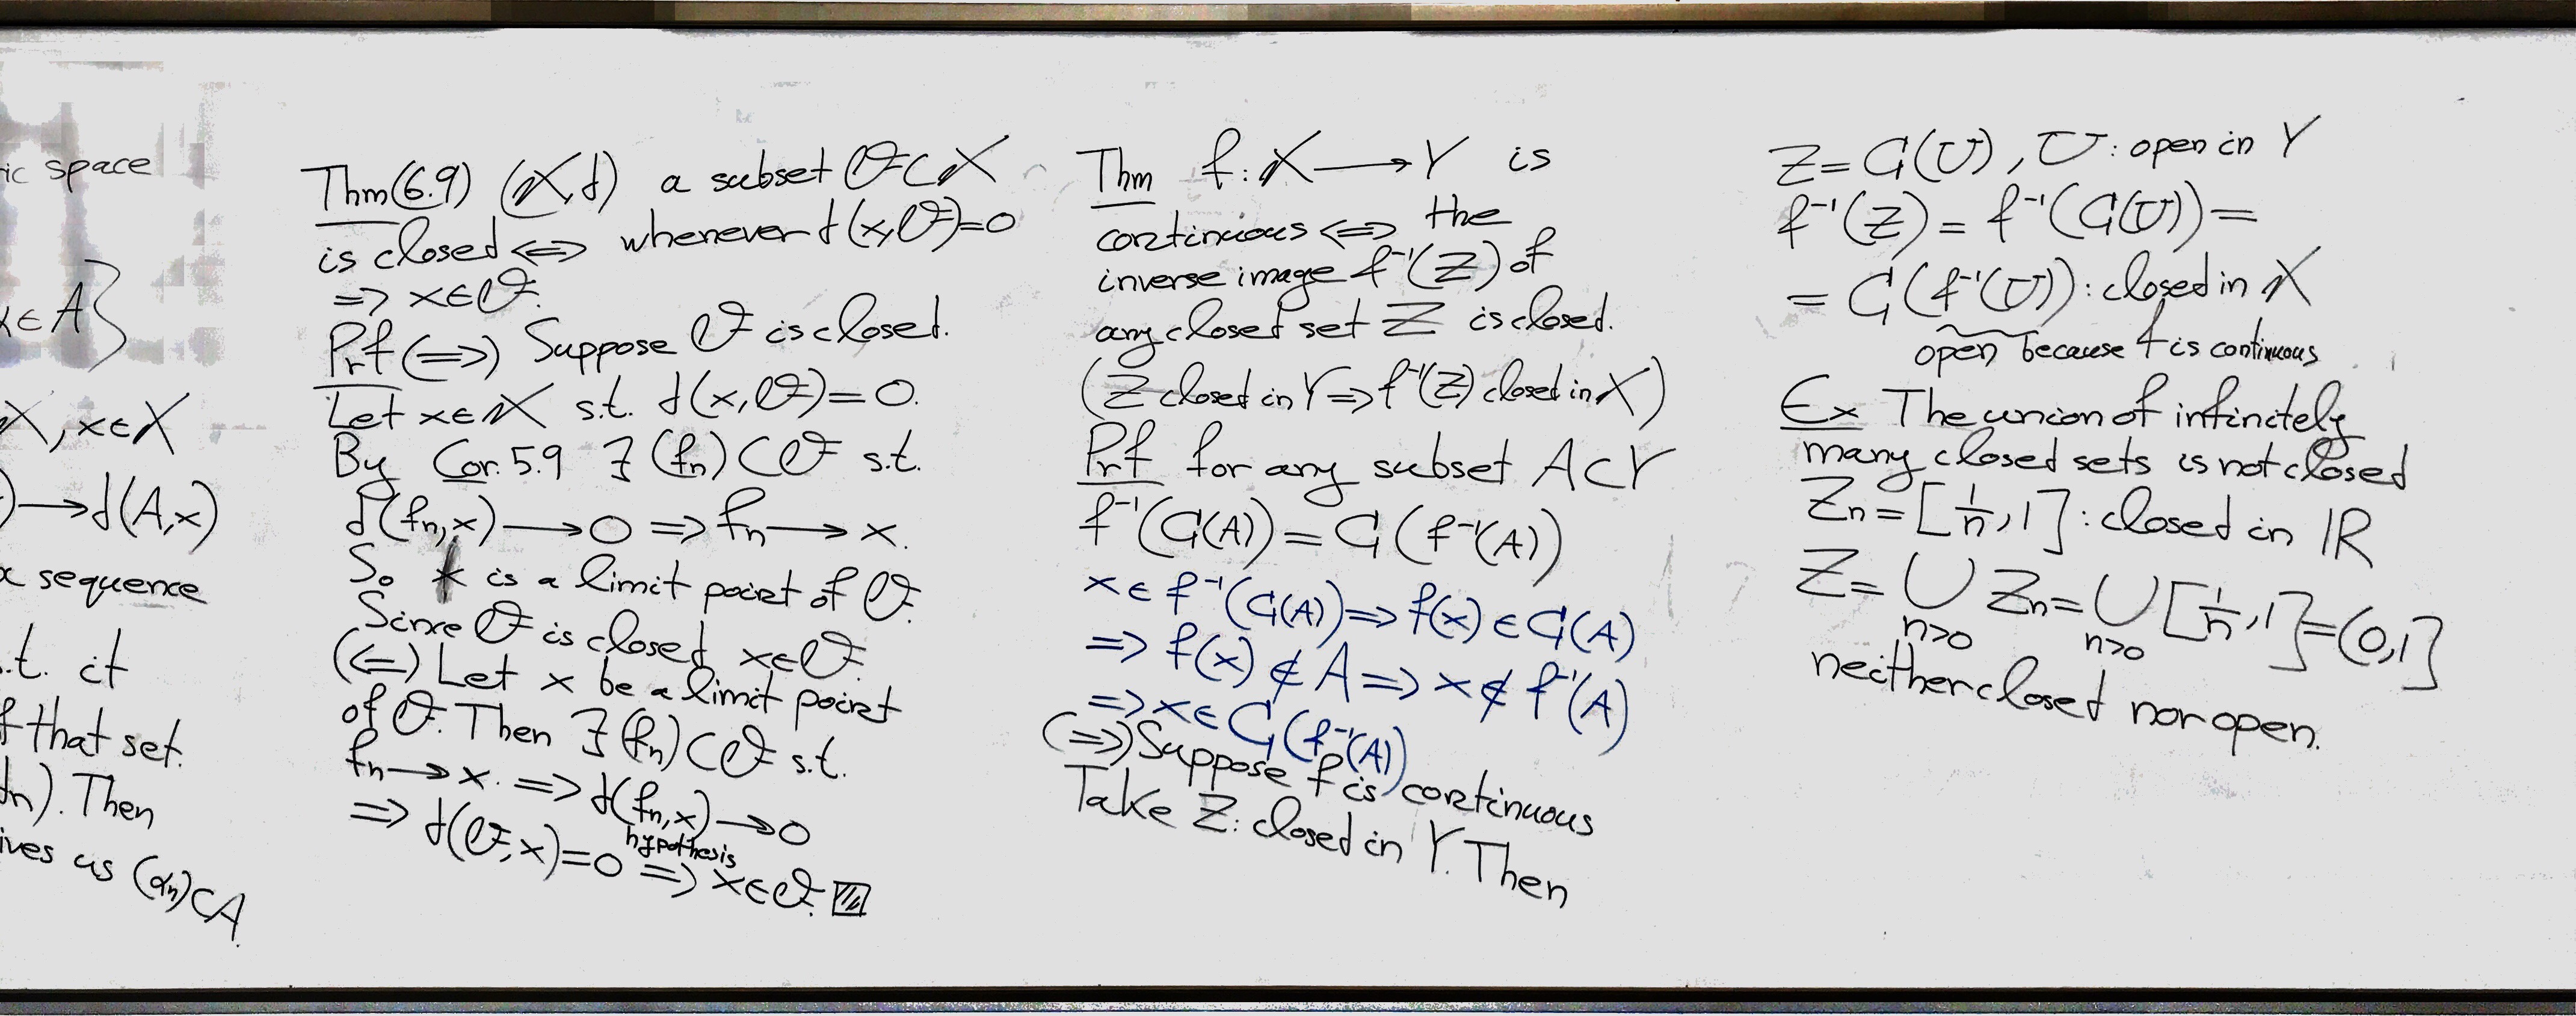 ic space
x∈A}
X, x∈X
)→d(A,x)
x sequence
s.t. it
f that set.
dn). Then
ives us (αn)⊂A.
Thm(6.9) (X,d) a subset F⊂X
is closed ⇔ whenever d(x,F)=0
⇒ x∈F.
Prf (⇒) Suppose F is closed.
Let x∈X s.t. d(x,F)=0.
By Cor.5.9 ∃ (fn)⊂F s.t.
d(fn,x)→0 ⇒ fn→x.
So x is a limit point of F.
Since F is closed x∈F.
(⇐) Let x be a limit point
of F. Then ∃(fn)⊂F s.t.
fn→x. ⇒ d(fn,x)→0
hypothesis
⇒ d(F,x)=0 ⇒ x∈F.
Thm f: X→Y is
continuous ⇔ the
inverse image f⁻¹(Z) of
any closed set Z is closed.
(Z closed in Y ⇒ f⁻¹(Z) closed in X)
Prf for any subset A⊂Y
f⁻¹(C(A)) = C(f⁻¹(A))
x∈f⁻¹(C(A)) ⇒ f(x)∈C(A)
⇒ f(x)∉A ⇒ x∉f⁻¹(A)
⇒ x∈C(f⁻¹(A))
(⇒) Suppose f is continuous
Take Z: closed in Y. Then
Z=C(U), U: open in Y
f⁻¹(Z) = f⁻¹(C(U)) =
= C(f⁻¹(U)): closed in X
open because f is continuous
Ex The union of infinitely
many closed sets is not closed
Zn=[1/n,1]: closed in ℝ
Z= ∪ Zn= ∪ [1/n,1]=(0,1]
n>0 n>0
neither closed nor open.